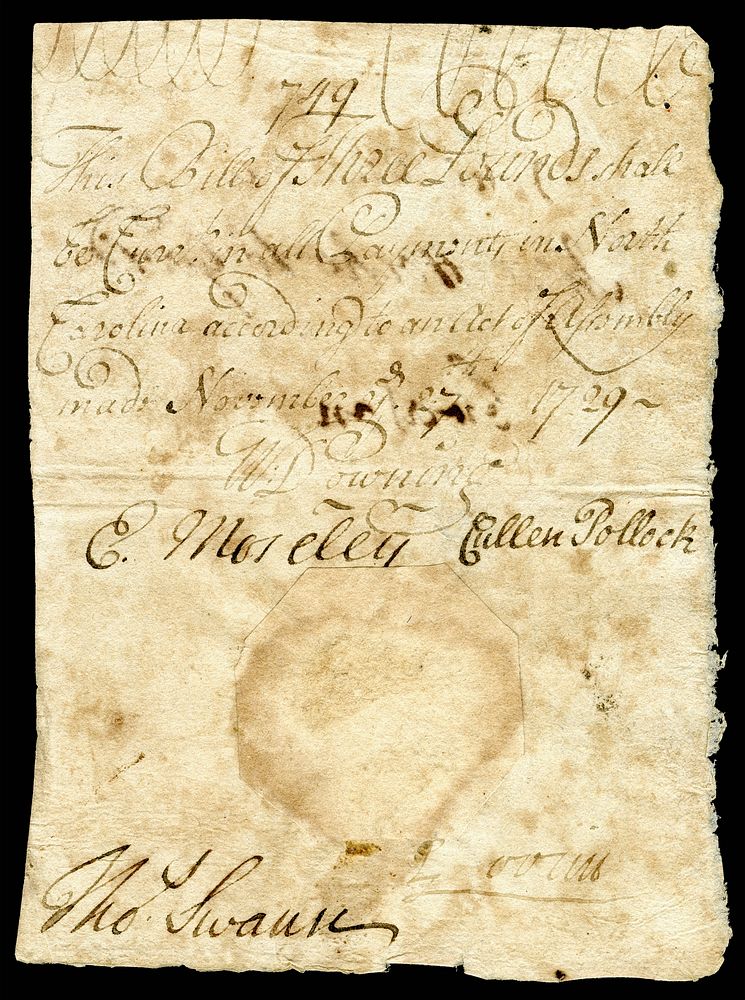 749
This Bill of Three Pounds shall
be Curr.t in all Payments in North
Carolina according to an Act of Assembly
made November ye. 27th 1729~
W: Downing
E. Moseley Cullen Pollock
Tho.s Swann